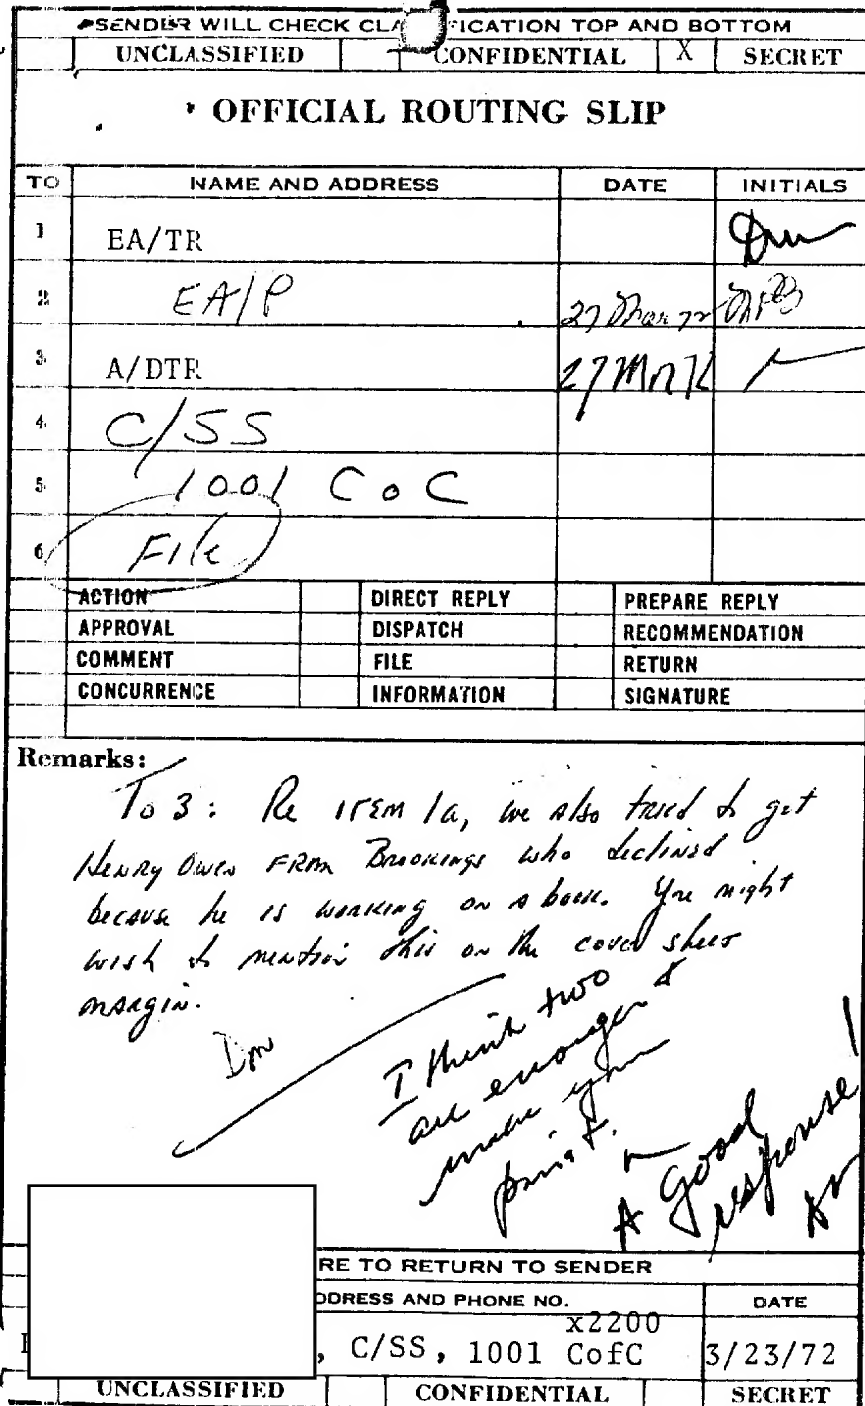 SENDER WILL CHECK CLA FICATION TOP AND BOTTOM
UNCLASSIFIED CONFIDENTIAL X SECRET
OFFICIAL ROUTING SLIP
TO NAME AND ADDRESS DATE INITIALS
1 EA/TR
2 EA/P 27 Mar 72
3 A/DTR 27 Mar 72
4 C/SS
5 1001 C o C
6 File
ACTION DIRECT REPLY PREPARE REPLY
APPROVAL DISPATCH RECOMMENDATION
COMMENT FILE RETURN
CONCURRENCE INFORMATION SIGNATURE
Remarks:
To 3: Re ITEM 1a, we also tried to get
Henry Owen FROM Brookings who declined
because he is working on a book. You might
wish to mention this on the cover sheet
margin.
Dm
I think two
are enough to
make your
point.
A good
response!
RE TO RETURN TO SENDER
DDRESS AND PHONE NO. DATE
x2200
, C/SS, 1001 CofC 3/23/72
UNCLASSIFIED CONFIDENTIAL SECRET